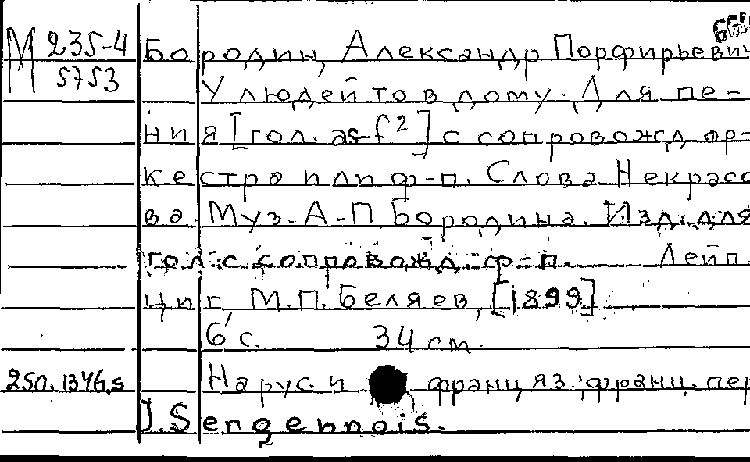 М 235-4
5753
Бородин, Александр Порфирьевич
У людей то в дому. Для пе-
ния [гол. as-f²] с сопровожд. ор-
кестра или ф-п. Слова Некрасо
ва. Муз. А.П. Бородина. Изд. для
гол. с сопровожд. ф-п. Лейп
циг М.П. Беляев, [1899]
6 с. 34 см.
25п. 1346.s На рус. и франц. яз.; франц. пер
J. Sergennois.